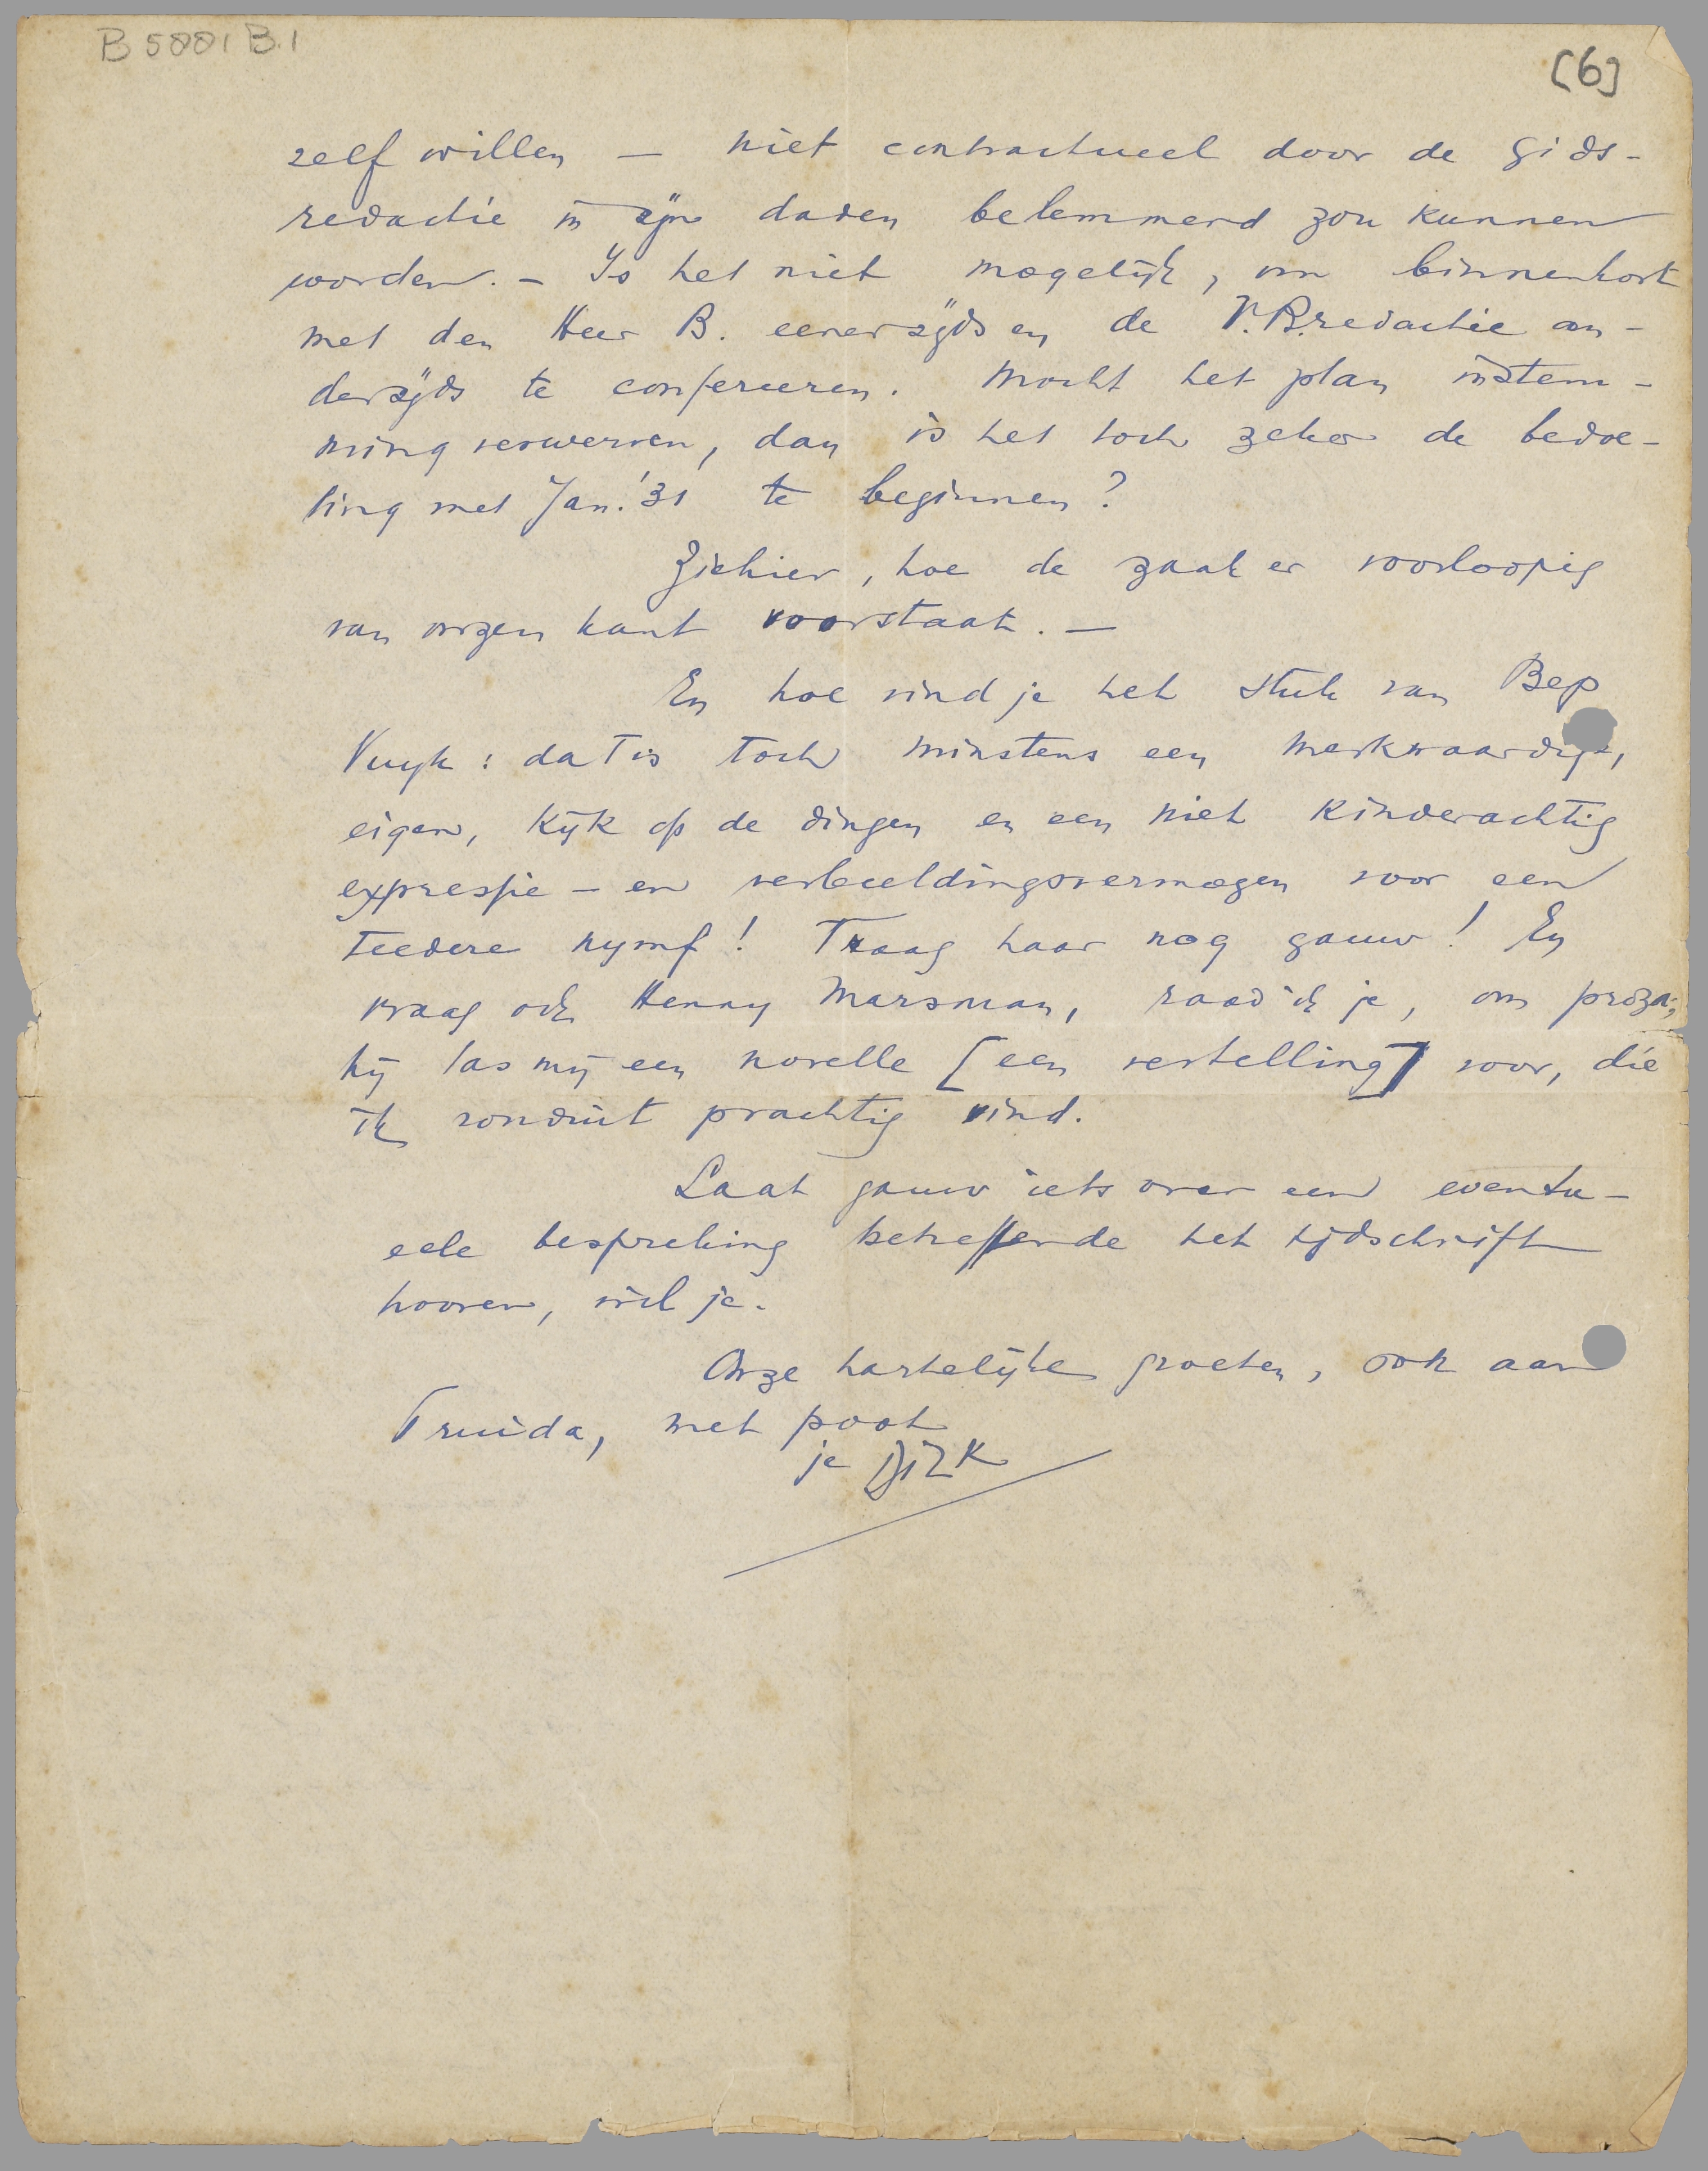 B 5001 B.1
[6]
zelf willen — niet contractueel door de Gids-
redactie in zijn daden belemmerd zou kunnen
worden. – Is het niet mogelijk, om binnenkort
met den Heer B. eenerzijds en de V.B.redactie an-
derzijds te confereeren. Mocht het plan instem-
ming verwerven, dan is het toch zeker de bedoe-
ling met Jan. '31 te beginnen?
Ziehier, hoe de zaak er voorloopig
van onzen kant voorstaat. —
En hoe vind je het stuk van Bep
Vuyk: dat is toch minstens een merkwaardige,
eigen, kijk op de dingen en een niet kinderachtig
expressie – en verbeeldingsvermogen voor een
teedere nymf! Traag haar nog gauw! En
vraag ook Henny Marsman, raad ik je, om proza;
hij las mij een novelle [een vertelling] voor, die
ik ronduit prachtig vind.
Laat gauw iets over een eventu-
eele bespreking betreffende het tijdschrift
hooren, wil je.
Onze hartelijke groeten, ook aan
Truida, met poot
je Dirk